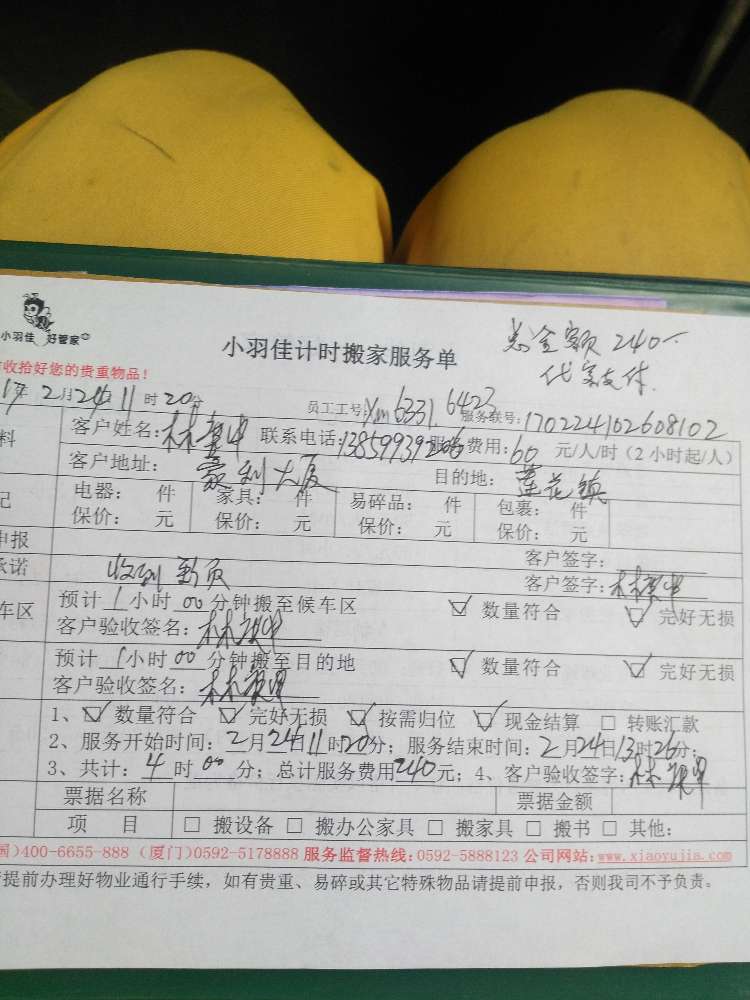 小羽佳 好管家
小羽佳计时搬家服务单
总金额240个
代客支付.
收拾好您的贵重物品！
年2月24日11时20分 员工工号：Xm6331.6423 服务联号：170224162608102
料 客户姓名： 联系电话： 服务费用：60元/人/时（2小时起/人）
客户地址：豪利大厦 目的地：莲花镇
记 电器： 件 家具： 件 易碎品： 件 包裹： 件
保价： 元 保价： 元 保价： 元 保价： 元
申报 客户签字：
承诺 收到 客户签字：
车区 预计1小时00分钟搬至候车区 ☑ 数量符合 ☑ 完好无损
客户验收签名：
预计1小时00分钟搬至目的地 ☑ 数量符合 ☑ 完好无损
客户验收签名：
1、☑ 数量符合 ☑ 完好无损 ☑ 按需归位 ☑ 现金结算 □ 转账汇款
2、服务开始时间：2月24日11时20分；服务结束时间：2月24日13时26分；
3、共计：4时00分；总计服务费用240元；4、客户验收签字：
票据名称 票据金额
项 目 □ 搬设备 □ 搬办公家具 □ 搬家具 □ 搬书 □ 其他：
国）400-6655-888（厦门）0592-5178888 服务监督热线：0592-5888123 公司网站：www.xiaoyujia.com
提前办理好物业通行手续，如有贵重、易碎或其它特殊物品请提前申报，否则我司不予负责。